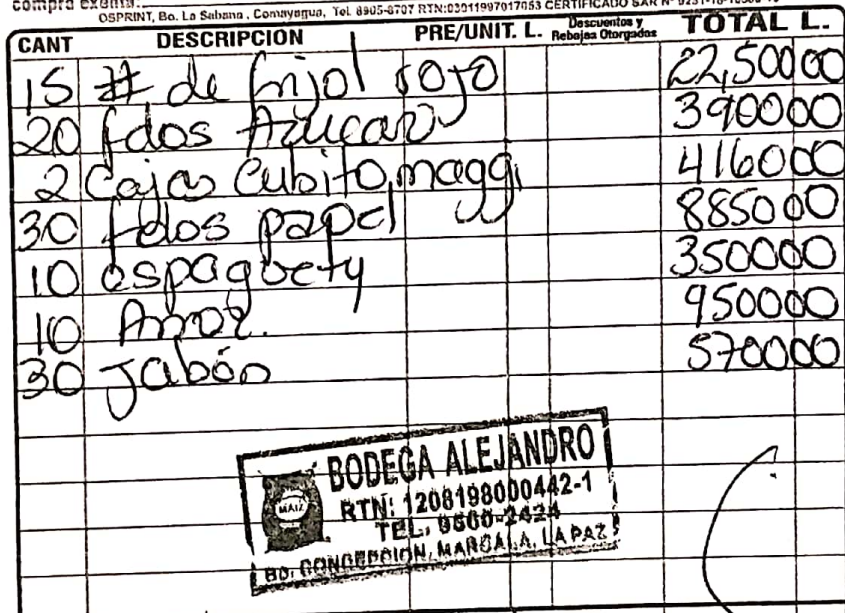 compra exenta:
OSPRINT, Bo. La Sabana, Comayagua, Tel 8905-8707 RTN:03011997017053 CERTIFICADO SAR Nº
CANT DESCRIPCION PRE/UNIT. L. Descuentos y Rebajas Otorgados TOTAL L.
15 # de frijol rojo 22,50000
20 fdos Azucar 390000
2 Cajas Cubito maggi 416000
30 fdos papel 885000
10 espaguety 350000
10 Arroz. 950000
30 Jabón 570000
BODEGA ALEJANDRO
MAIZ
RTN: 1208198000442-1
TEL: 9860-2424
BO. CONCEPCION, MARCALA, LA PAZ